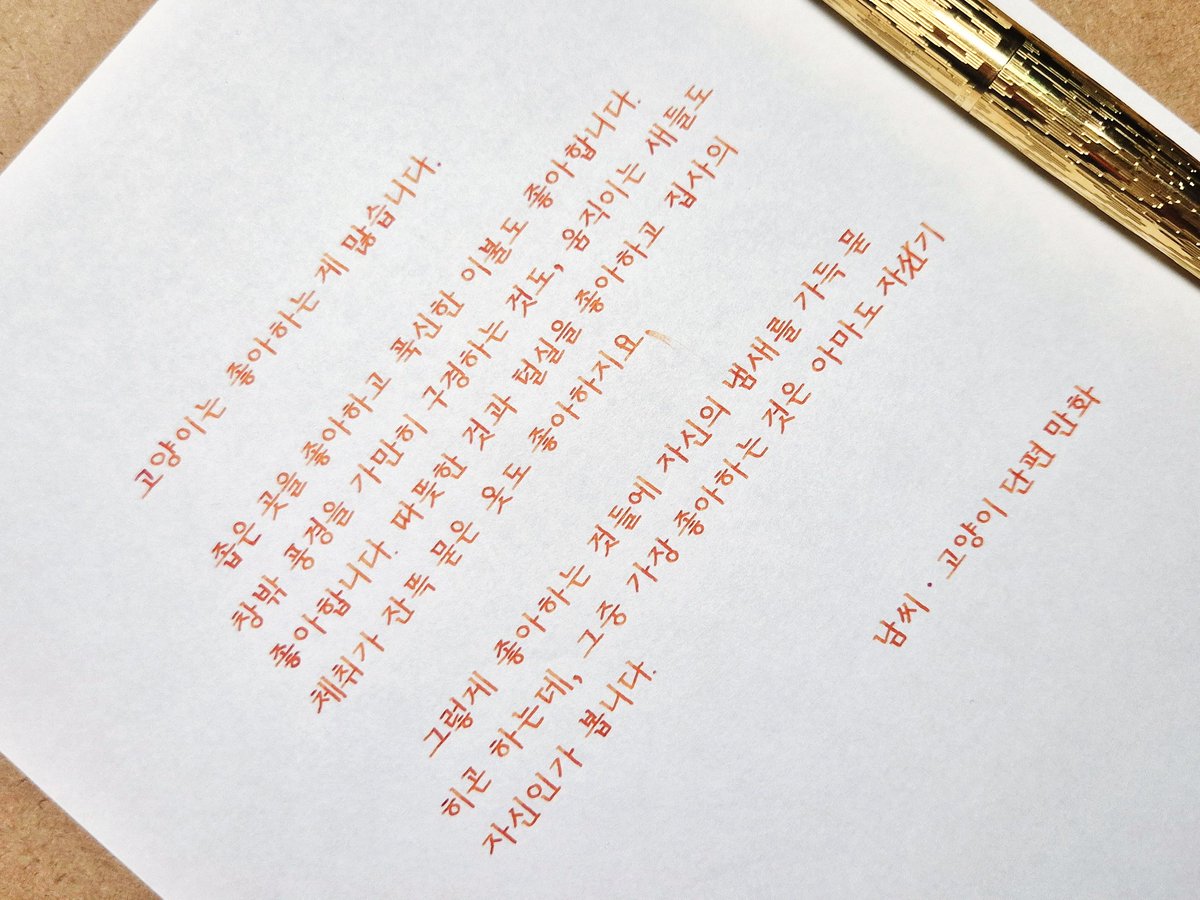 고양이는 좋아하는 게 많습니다.
좁은 곳을 좋아하고 푹신한 이불도 좋아합니다.
창밖 풍경을 가만히 구경하는 것도, 움직이는 새들도
좋아합니다. 따뜻한 것과 털실을 좋아하고 집사의
체취가 잔뜩 묻은 옷도 좋아하지요.
그렇게 좋아하는 것들에 자신의 냄새를 가득 묻
히곤 하는데, 그중 가장 좋아하는 것은 아마도 자기
자신인가 봅니다.
남씨 · 고양이 단편 만화